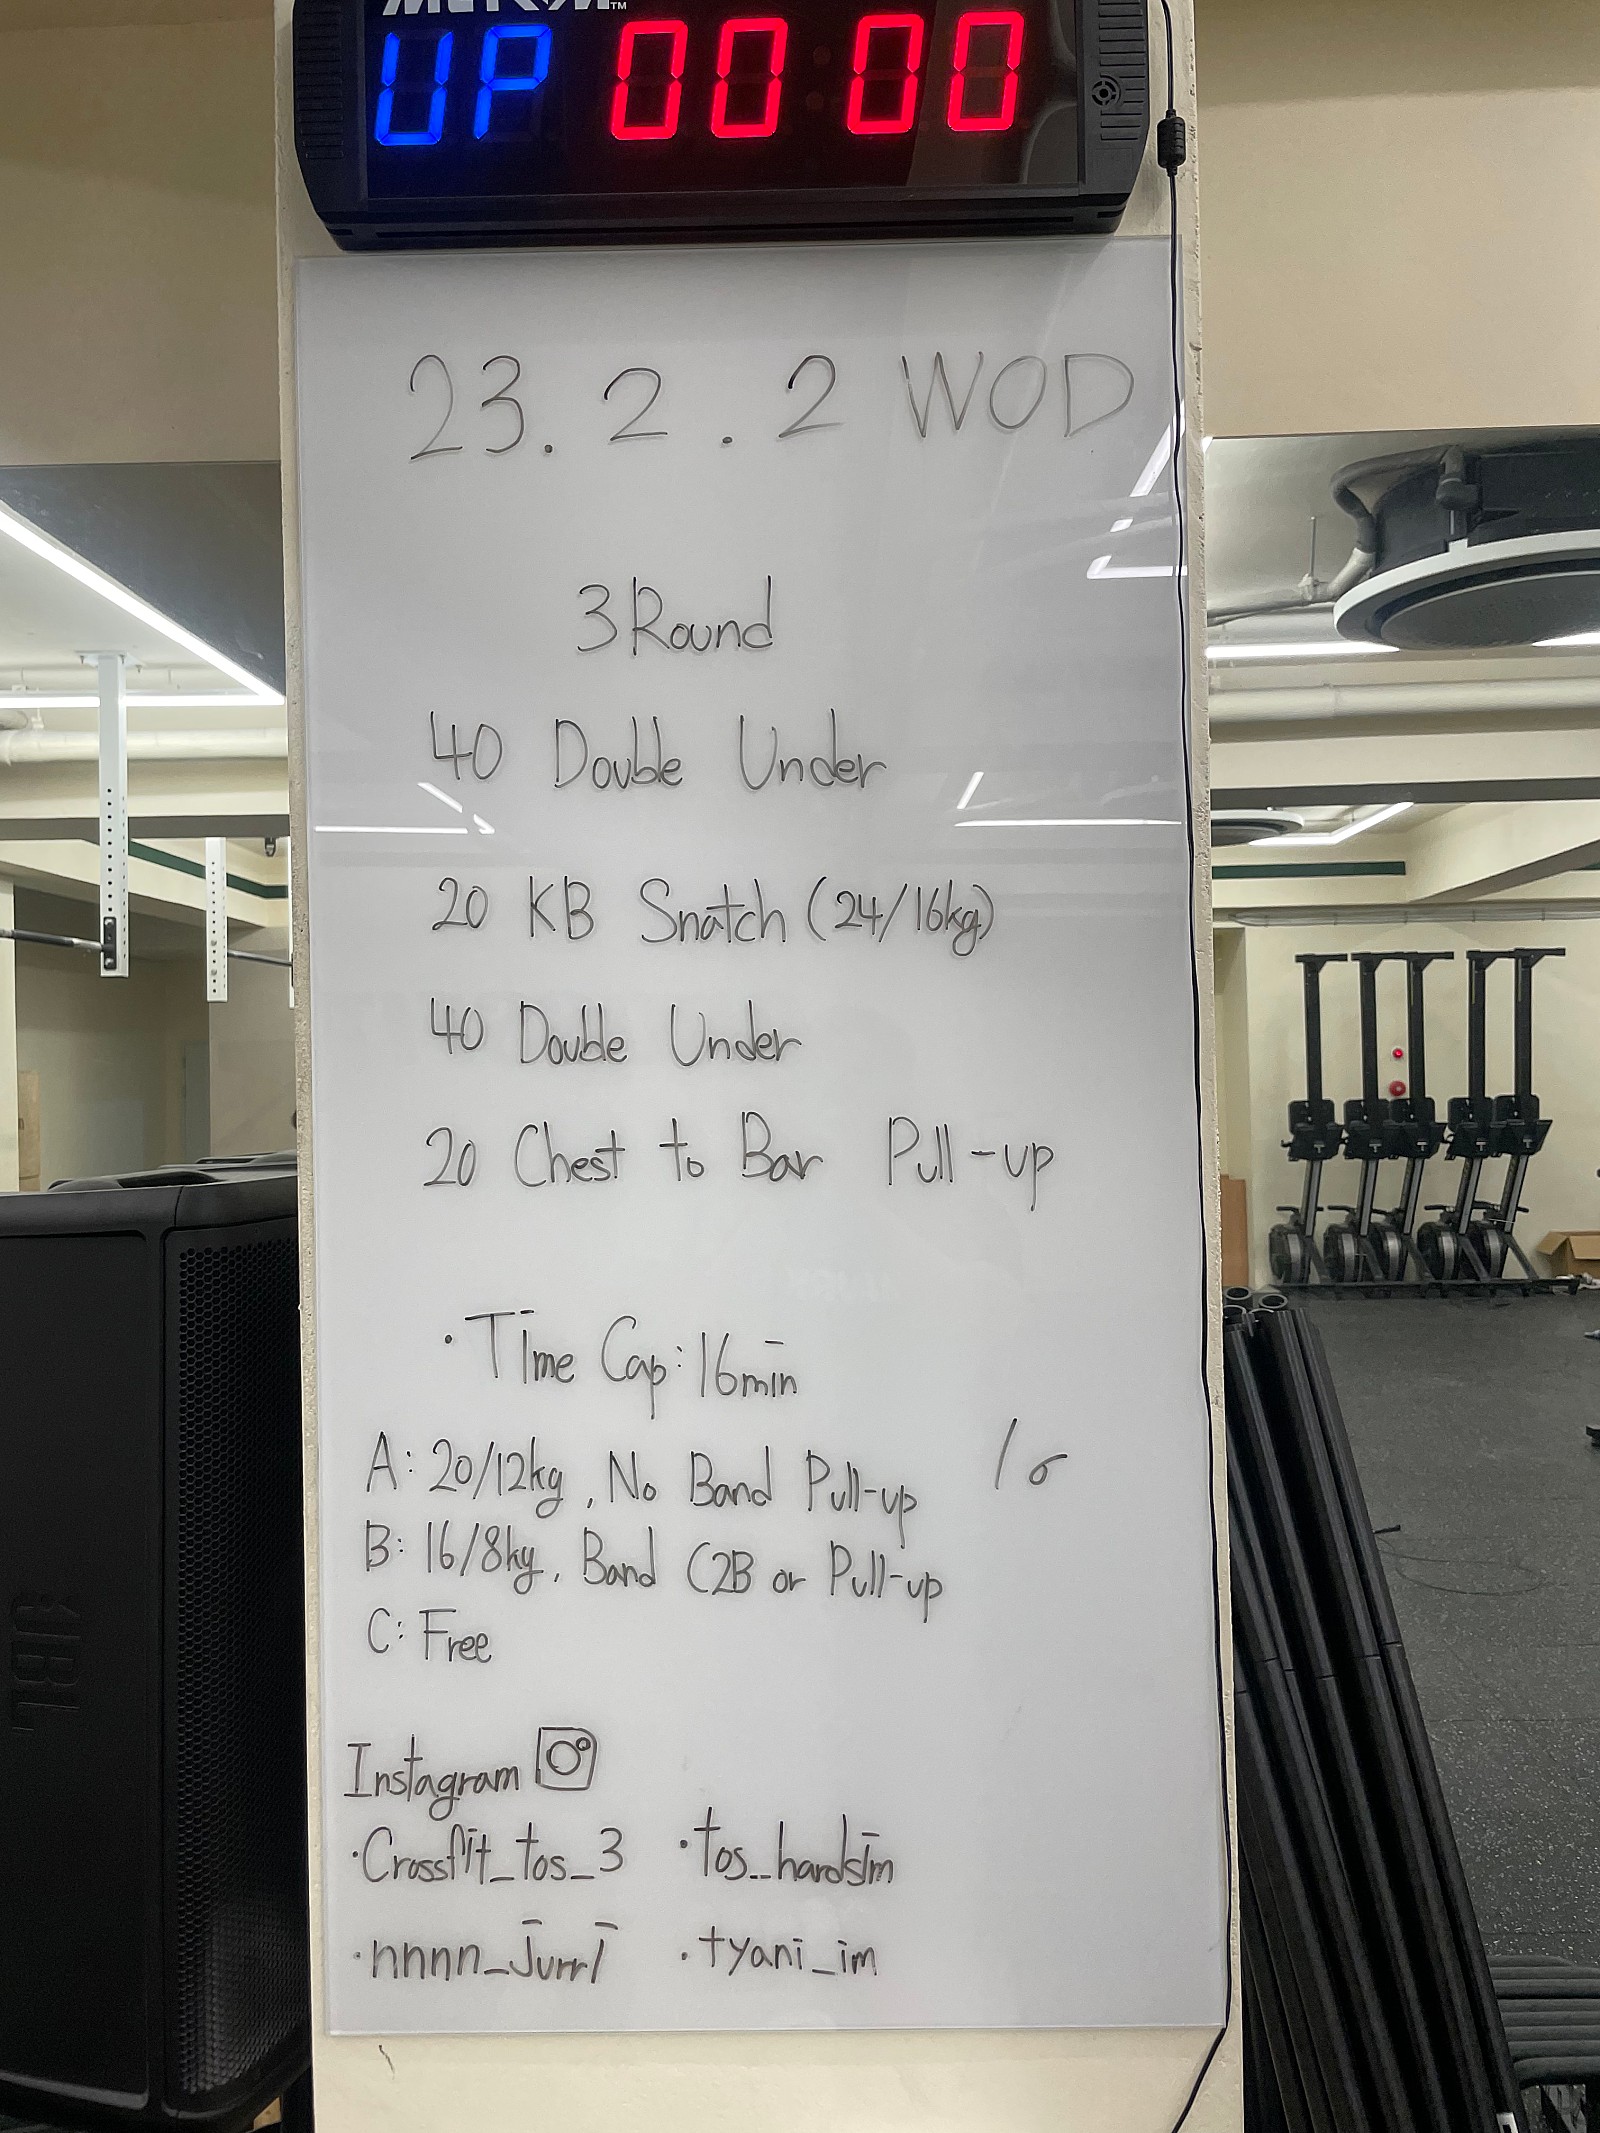 UP 00 00
23. 2. 2 WOD
3 Round
40 Double Under
20 KB Snatch (24/16kg)
40 Double Under
20 Chest to Bar Pull-up
• Time Cap: 16min
A: 20/12kg, No Band Pull-up
B: 16/8kg, Band C2B or Pull-up
C: Free
Instagram
•Crossfit_tos_3 •tos_hardsim
•nnnn_jurri •tyani_im
JBL